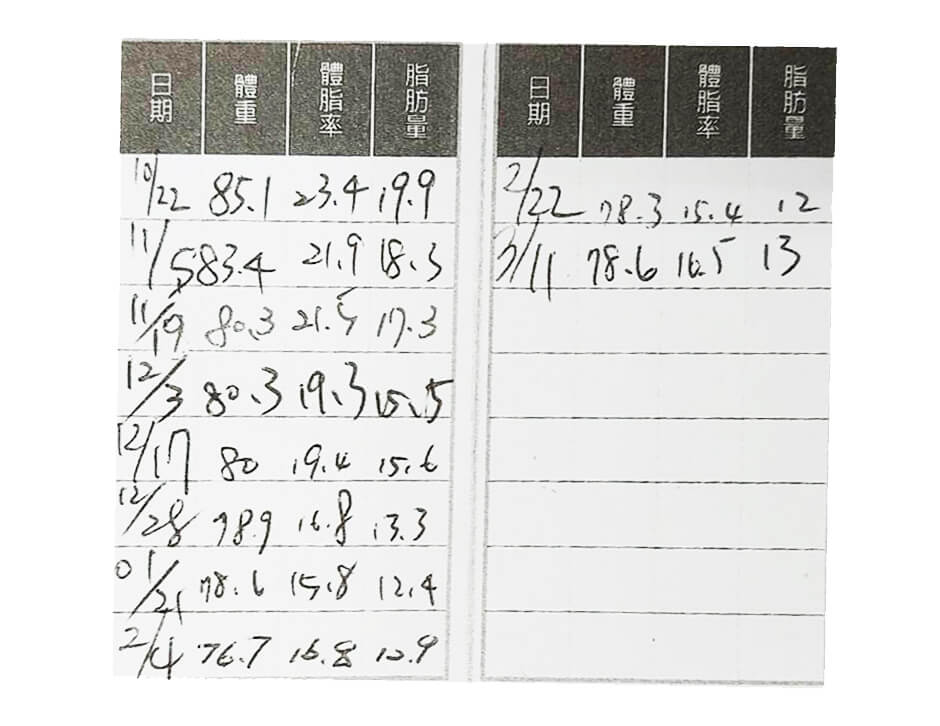 日期 體重 體脂率 脂肪量
10/22 85.1 23.4 19.9
11/5 83.4 21.9 18.3
11/19 80.3 21.5 17.3
12/3 80.3 19.3 15.5
12/17 80 19.4 15.6
12/28 78.9 16.8 13.3
01/21 78.6 15.8 12.4
2/4 76.7 16.8 12.9
日期 體重 體脂率 脂肪量
2/22 78.3 15.4 12
3/11 78.6 16.5 13